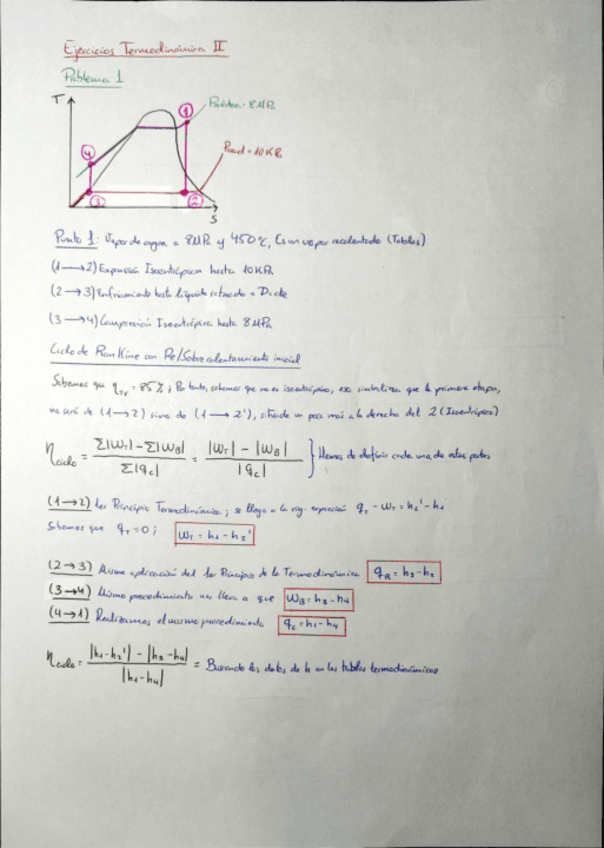 Ejercicios Termodinámica II
Problema 1
T
1
Pcaldera = 8MPa
4
Pcond = 10KPa
3
2
S
Punto 1: Vapor de agua a 8MPa y 450ºC, Es un vapor recalentado (Tablas)
(1→2) Expansión Isoentrópica hasta 10KPa
(2→3) Enfriamiento hasta líquido saturado a P=cte
(3→4) Compresión Isoentrópica hasta 8MPa
Ciclo de Rankine con Re/Sobrecalentamiento inicial
Sabemos que = 85%; Por tanto, sabemos que no es isoentrópico, eso simboliza que la primera etapa,
no será de (1→2) sino de (1→2'), situado un poco más a la derecha del 2 (Isoentrópico)
ηciclo = Σ|WT| - Σ|WB| / Σ|qc| = |WT| - |WB| / |qc| } Hemos de definir cada una de estas partes
(1→2) 1er Principio Termodinámica; se llega a la sig. expresión qT - WT = h2' - h1
Sabemos que qT = 0; WT = h1 - h2'
(2→3) Misma aplicación del 1er Principio de la Termodinámica qR = h3 - h2
(3→4) Mismo procedimiento nos lleva a que WB = h3 - h4
(4→1) Realizamos el mismo procedimiento qc = h1 - h4
ηciclo = |h1 - h2'| - |h3 - h4| / |h1 - h4| = Buscando los datos de h en las tablas termodinámicas